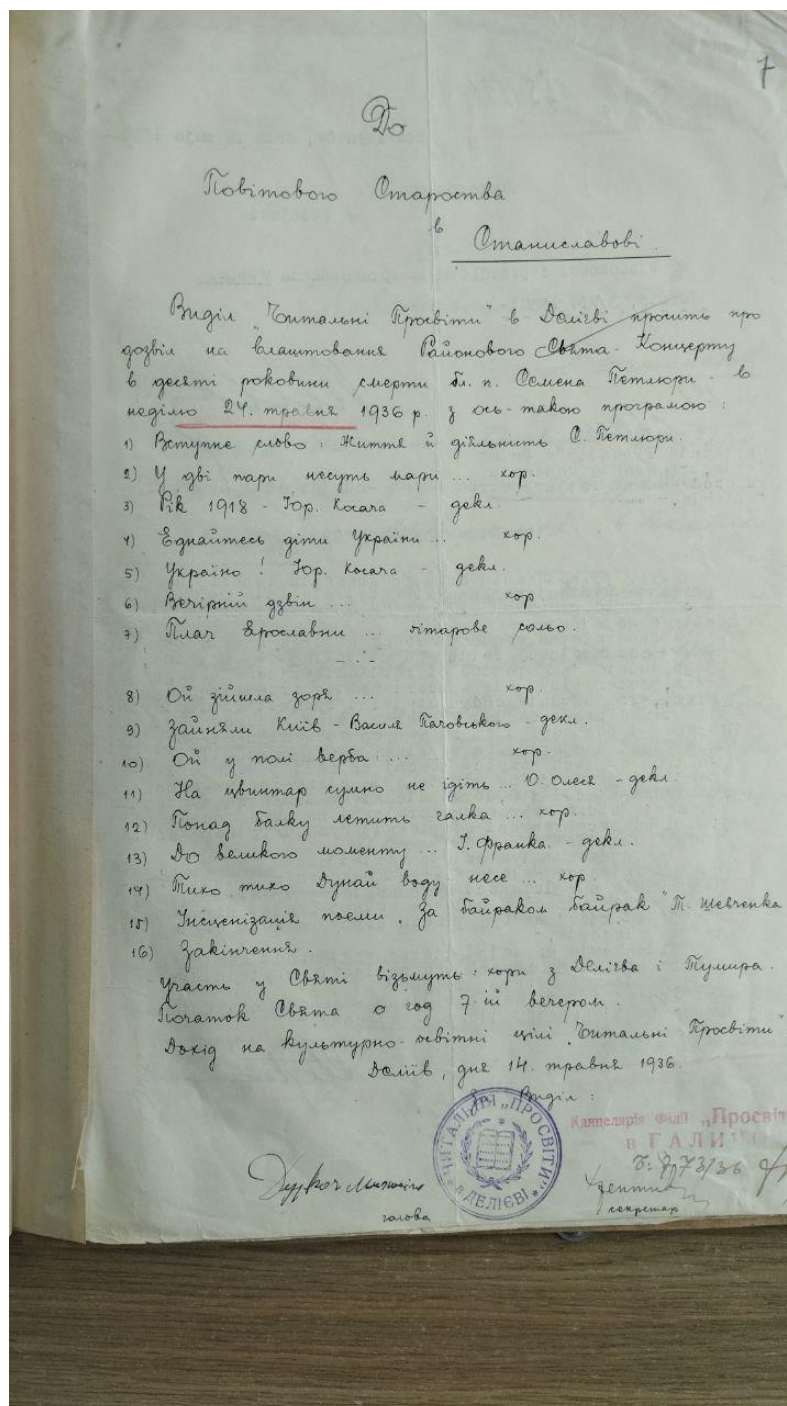 7
До
Повітового Староства
в
Станиславові.
Виділ „Читальні Просвіти" в Делієві просить про
дозвіл на влаштовання Районового Свята-Концерту
в десяті роковини смерти бл. п. Семена Петлюри - в
неділю 24. травня 1936 р. з ось-такою програмою:
1) Вступне слово: Життя й діяльність С. Петлюри.
2) У дві пари несуть мари ... хор.
3) Рік 1918 - Юр. Косача - декл.
4) Єднайтесь діти України ... хор.
5) Україно! Юр. Косача - декл.
6) Вечірній дзвін ... хор.
7) Плач Ярославни ... гітарове сольо.
- . -
8) Ой зійшла зоря ... хор.
9) Зайняли Київ - Василя Пачовського - декл.
10) Ой у полі верба ... хор.
11) На цвинтар сумно не ідіть ... О. Олеся - декл.
12) Понад балку летить галка ... хор.
13) До великого моменту ... І. Франка. - декл.
14) Тихо тихо Дунай воду несе ... хор
15) Інсценізація поеми „За байраком байрак" Т. Шевченка
16) Закінчення.
Участь у Святі візьмуть: хори з Делієва і Тумира.
Початок Свята о год 7-ій вечером.
Дохід на культурно-освітні цілі „Читальні Просвіти"
Деліїв, дня 14. травня 1936.
За Виділ:
ЧИТАЛЬНЯ „ПРОСВІТИ"
в ДЕЛІЄВІ
Канцелярія Філії „Просвіт
в ГАЛИ
Ч: 773/36
голова
секретар